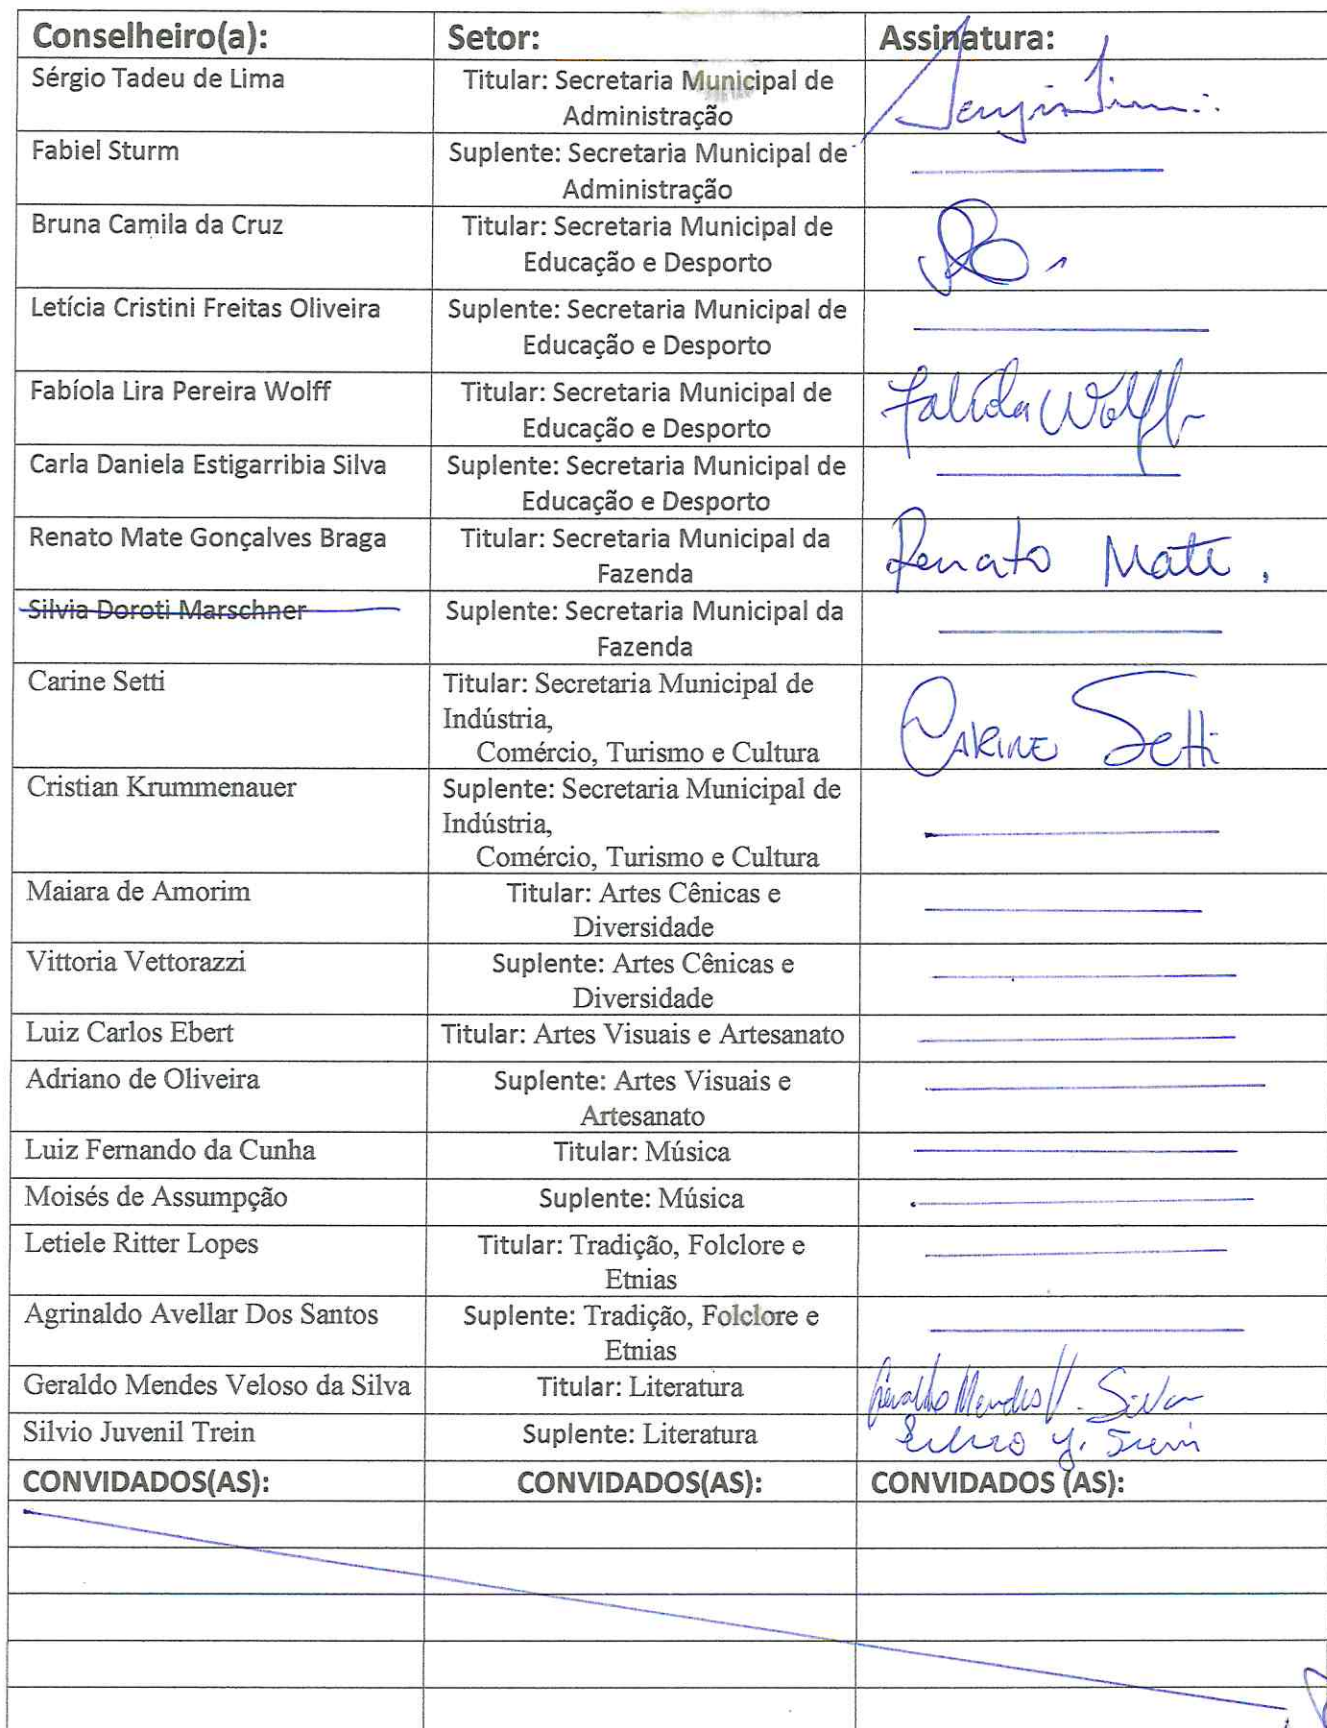 Conselheiro(a): Setor: Assinatura:
Sérgio Tadeu de Lima Titular: Secretaria Municipal de
Administração
Fabiel Sturm Suplente: Secretaria Municipal de
Administração
Bruna Camila da Cruz Titular: Secretaria Municipal de
Educação e Desporto
Letícia Cristini Freitas Oliveira Suplente: Secretaria Municipal de
Educação e Desporto
Fabíola Lira Pereira Wolff Titular: Secretaria Municipal de Fabíola Wolff
Educação e Desporto
Carla Daniela Estigarribia Silva Suplente: Secretaria Municipal de
Educação e Desporto
Renato Mate Gonçalves Braga Titular: Secretaria Municipal da Renato Mate.
Fazenda
Silvia Doroti Marschner Suplente: Secretaria Municipal da
Fazenda
Carine Setti Titular: Secretaria Municipal de
Indústria, CARINE Setti
Comércio, Turismo e Cultura
Cristian Krummenauer Suplente: Secretaria Municipal de
Indústria,
Comércio, Turismo e Cultura
Maiara de Amorim Titular: Artes Cênicas e
Diversidade
Vittoria Vettorazzi Suplente: Artes Cênicas e
Diversidade
Luiz Carlos Ebert Titular: Artes Visuais e Artesanato
Adriano de Oliveira Suplente: Artes Visuais e
Artesanato
Luiz Fernando da Cunha Titular: Música
Moisés de Assumpção Suplente: Música
Letiele Ritter Lopes Titular: Tradição, Folclore e
Etnias
Agrinaldo Avellar Dos Santos Suplente: Tradição, Folclore e
Etnias
Geraldo Mendes Veloso da Silva Titular: Literatura Geraldo Mendes V. Silva
Silvio Juvenil Trein Suplente: Literatura Silvio J. Trein
CONVIDADOS(AS): CONVIDADOS(AS): CONVIDADOS (AS):